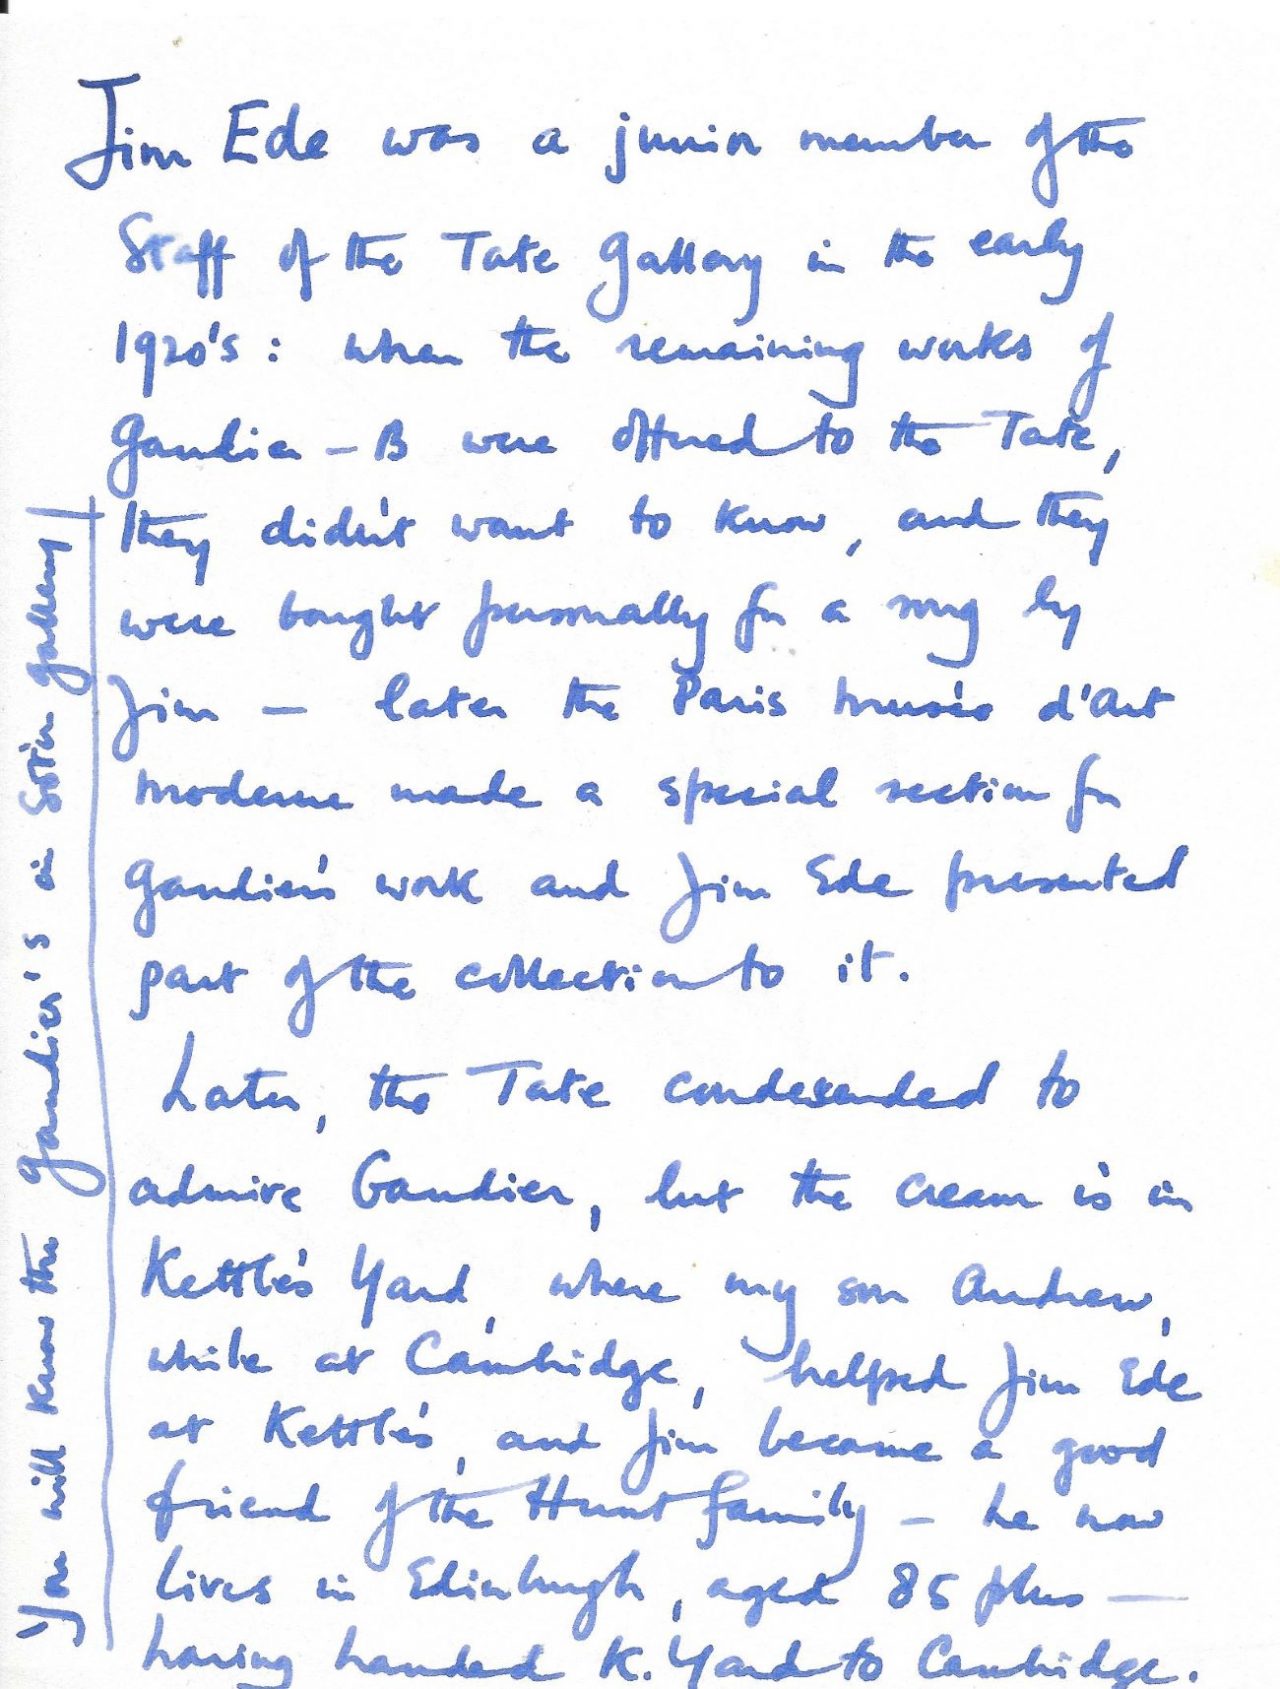 Jim Ede was a junior member of the
Staff of the Tate Gallery in the early
1920's : when the remaining works of
Gaudier - B were offered to the Tate,
they didn't want to know, and they
were bought personally for a song by
Jim — later the Paris Musée d'Art
Moderne made a special section for
Gaudier's work and Jim Ede presented
part of the collection to it.
Later, the Tate condesended to
admire Gaudier, but the cream is in
Kettle's Yard, where my son Andrew,
while at Cambridge, helped Jim Ede
at Kettle's, and Jim became a good
friend of the Hunt family — he now
lives in Edinburgh, aged 85 plus —
having handed K. Yard to Cambridge.
You will know the Gaudier's in Gallery